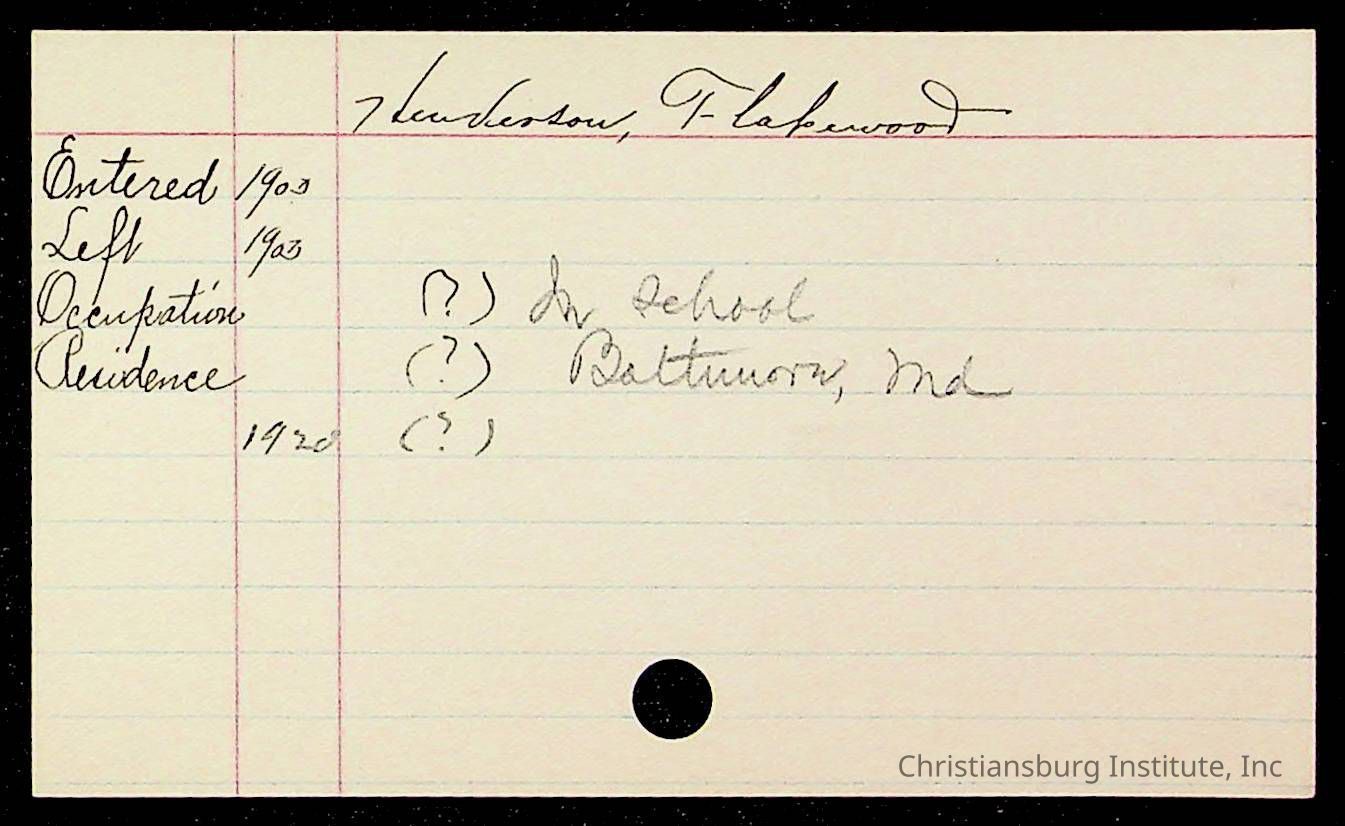 Henderson, Flakewood
Entered 1903
Left 1903
Occupation (?) In school
Residence (?) Baltimore, Md
1920 (?)
Christiansburg Institute, Inc